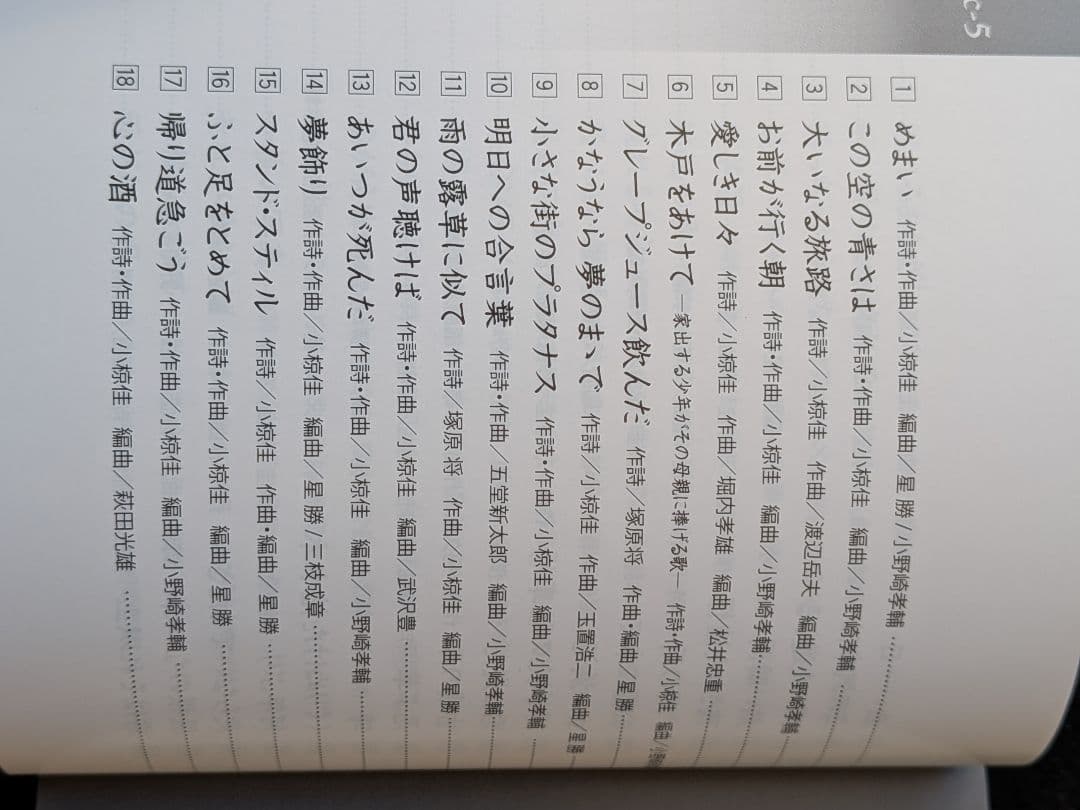 c-5
1 めまい 作詩・作曲／小椋佳 編曲／星 勝/小野崎孝輔
2 この空の青さは 作詩・作曲／小椋佳 編曲／小野崎孝輔
3 大いなる旅路 作詩／小椋佳 作曲／渡辺岳夫 編曲／小野崎孝輔
4 お前が行く朝 作詩・作曲／小椋佳 編曲／小野崎孝輔
5 愛しき日々 作詩／小椋佳 作曲／堀内孝雄 編曲／松井忠重
6 木戸をあけて ー家出する少年がその母親に捧げる歌ー 作詩・作曲／小椋佳 編曲／小野崎
7 グレープジュース飲んだ 作詩／塚原将 作曲・編曲／星 勝
8 かなうなら 夢のまゝで 作詩／小椋佳 作曲／玉置浩二 編曲／星 勝
9 小さな街のプラタナス 作詩・作曲／小椋佳 編曲／小野崎孝輔
10 明日への合言葉 作詩・作曲／五堂新太郎 編曲／小野崎孝輔
11 雨の露草に似て 作詩／塚原 将 作曲／小椋佳 編曲／星 勝
12 君の声聴けば 作詩・作曲／小椋佳 編曲／武沢豊
13 あいつが死んだ 作詩・作曲／小椋佳 編曲／小野崎孝輔
14 夢飾り 作詩・作曲／小椋佳 編曲／星 勝/三枝成章
15 スタンド・スティル 作詩／小椋佳 作曲・編曲／星 勝
16 ふと足をとめて 作詩・作曲／小椋佳 編曲／星 勝
17 帰り道急ごう 作詩・作曲／小椋佳 編曲／小野崎孝輔
18 心の酒 作詩・作曲／小椋佳 編曲／萩田光雄